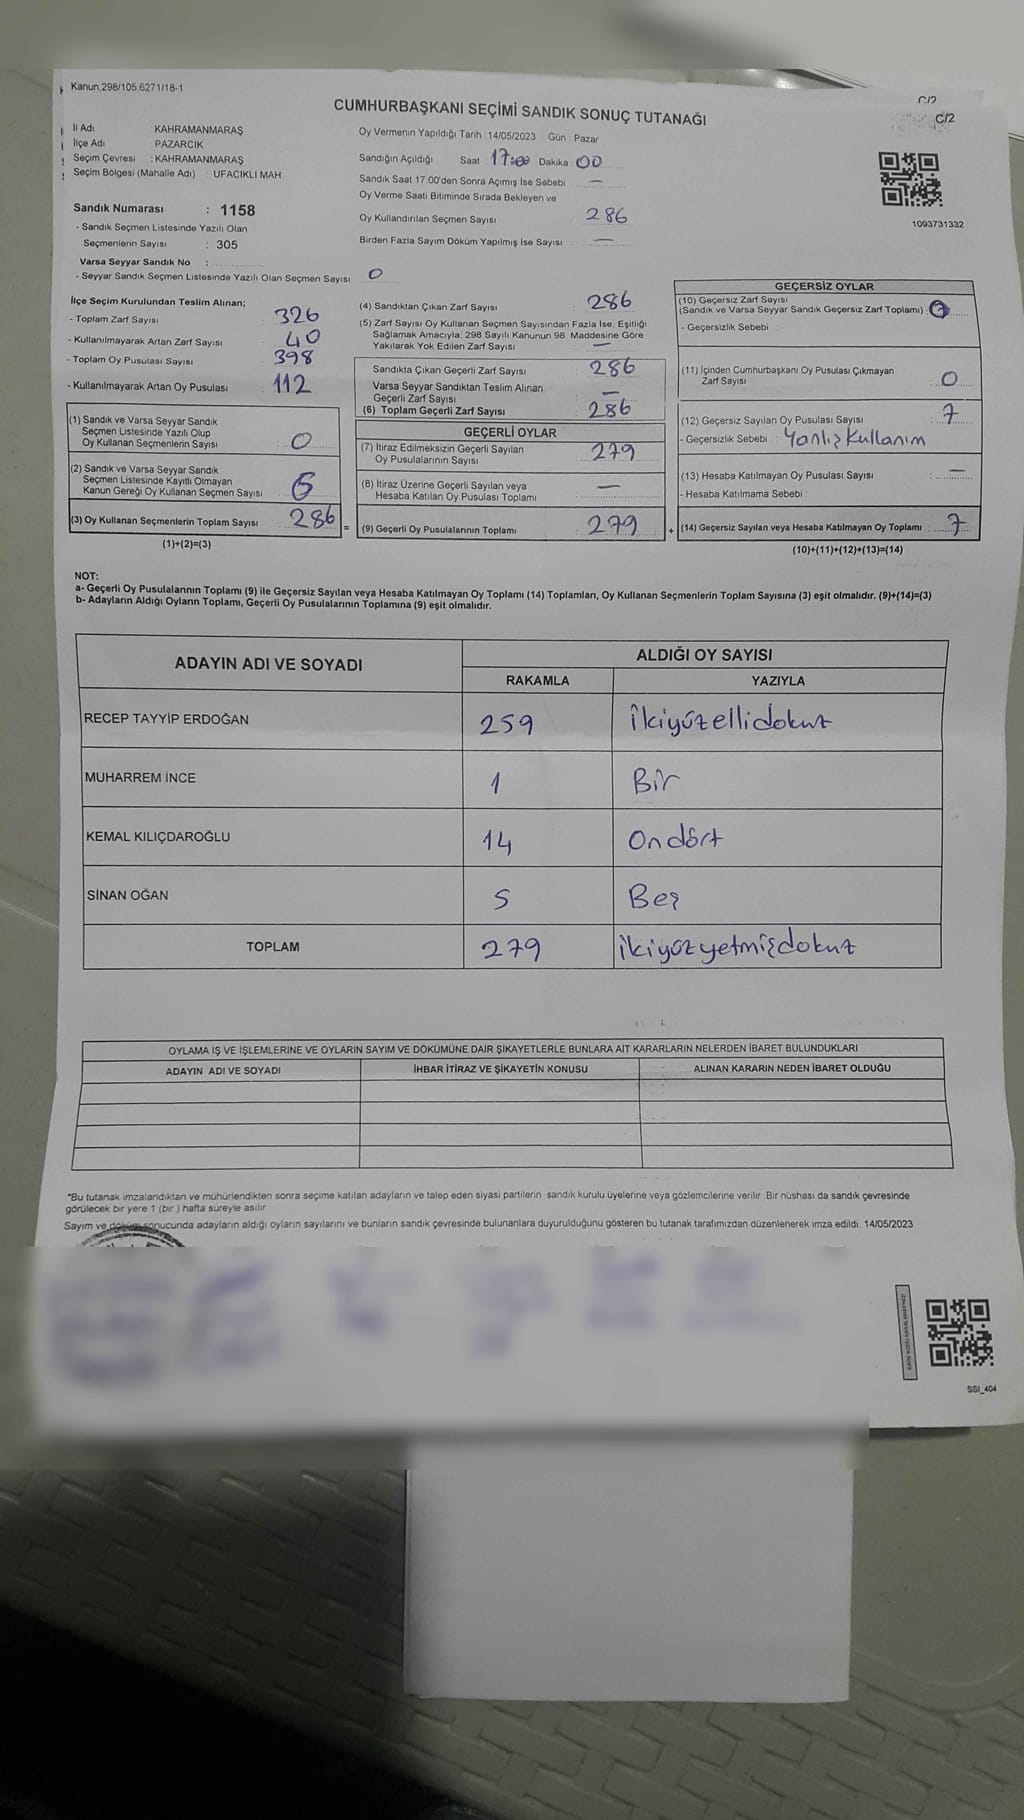 Kanun,298/105,6271/18-1
CUMHURBAŞKANI SEÇİMİ SANDIK SONUÇ TUTANAĞI
C/2
C/2
İl Adı KAHRAMANMARAŞ
İlçe Adı PAZARCIK
Seçim Çevresi : KAHRAMANMARAŞ
Seçim Bölgesi (Mahalle Adı) UFACIKLI MAH.
Sandık Numarası : 1158
- Sandık Seçmen Listesinde Yazılı Olan
Seçmenlerin Sayısı : 305
Varsa Seyyar Sandık No :
- Seyyar Sandık Seçmen Listesinde Yazılı Olan Seçmen Sayısı 0
Oy Vermenin Yapıldığı Tarih :14/05/2023 Gün : Pazar
Sandığın Açıldığı Saat 17:00 Dakika : 00
Sandık Saat 17:00'den Sonra Açımış İse Sebebi : —
Oy Verme Saati Bitiminde Sırada Bekleyen ve
Oy Kullandırılan Seçmen Sayısı 286
Birden Fazla Sayım Döküm Yapılmış İse Sayısı —
1093731332
İlçe Seçim Kurulundan Teslim Alınan;
- Toplam Zarf Sayısı : 326
- Kullanılmayarak Artan Zarf Sayısı : 40
- Toplam Oy Pusulası Sayısı : 398
- Kullanılmayarak Artan Oy Pusulası : 112
(1) Sandık ve Varsa Seyyar Sandık
Seçmen Listesinde Yazılı Olup
Oy Kullanan Seçmenlerin Sayısı : 0
(2) Sandık ve Varsa Seyyar Sandık
Seçmen Listesinde Kayıtlı Olmayan
Kanun Gereği Oy Kullanan Seçmen Sayısı
(3) Oy Kullanan Seçmenlerin Toplam Sayısı : 286
(1)+(2)=(3)
=
(4) Sandıktan Çıkan Zarf Sayısı : 286
(5) Zarf Sayısı Oy Kullanan Seçmen Sayısından Fazla İse, Eşitliği
Sağlamak Amacıyla; 298 Sayılı Kanunun 98. Maddesine Göre
Yakılarak Yok Edilen Zarf Sayısı : —
Sandıkta Çıkan Geçerli Zarf Sayısı : 286
Varsa Seyyar Sandıktan Teslim Alınan
Geçerli Zarf Sayısı : —
(6) Toplam Geçerli Zarf Sayısı : 286
GEÇERLİ OYLAR
(7) İtiraz Edilmeksizin Geçerli Sayılan
Oy Pusulalarının Sayısı : 279
(8) İtiraz Üzerine Geçerli Sayılan veya
Hesaba Katılan Oy Pusulası Toplamı : —
(9) Geçerli Oy Pusulalarının Toplamı : 279
+
GEÇERSİZ OYLAR
(10) Geçersiz Zarf Sayısı
(Sandık ve Varsa Seyyar Sandık Geçersiz Zarf Toplamı) :
- Geçersizlik Sebebi :
(11) İçinden Cumhurbaşkanı Oy Pusulası Çıkmayan
Zarf Sayısı : 0
(12) Geçersiz Sayılan Oy Pusulası Sayısı : 7
- Geçersizlik Sebebi : Yanlış Kullanım
(13) Hesaba Katılmayan Oy Pusulası Sayısı : —
- Hesaba Katılmama Sebebi :
(14) Geçersiz Sayılan veya Hesaba Katılmayan Oy Toplamı : 7
(10)+(11)+(12)+(13)=(14)
NOT:
a- Geçerli Oy Pusulalarının Toplamı (9) ile Geçersiz Sayılan veya Hesaba Katılmayan Oy Toplamı (14) Toplamları, Oy Kullanan Seçmenlerin Toplam Sayısına (3) eşit olmalıdır. (9)+(14)=(3)
b- Adayların Aldığı Oyların Toplamı, Geçerli Oy Pusulalarının Toplamına (9) eşit olmalıdır.
ADAYIN ADI VE SOYADI ALDIĞI OY SAYISI
RAKAMLA YAZIYLA
RECEP TAYYİP ERDOĞAN 259 İkiyüzellidokuz
MUHARREM İNCE 1 Bir
KEMAL KILIÇDAROĞLU 14 Ondört
SİNAN OĞAN 5 Beş
TOPLAM 279 İkiyüzyetmişdokuz
OYLAMA İŞ VE İŞLEMLERİNE VE OYLARIN SAYIM VE DÖKÜMÜNE DAİR ŞİKAYETLERLE BUNLARA AİT KARARLARIN NELERDEN İBARET BULUNDUKLARI
ADAYIN ADI VE SOYADI İHBAR İTİRAZ VE ŞİKAYETİN KONUSU ALINAN KARARIN NEDEN İBARET OLDUĞU
*Bu tutanak imzalandıktan ve mühürlendikten sonra seçime katılan adayların ve talep eden siyasi partilerin sandık kurulu üyelerine veya gözlemcilerine verilir. Bir nüshası da sandık çevresinde
görülecek bir yere 1 (bir ) hafta süreyle asılır.
Sayım ve döküm sonucunda adayların aldığı oyların sayılarını ve bunların sandık çevresinde bulunanlara duyurulduğunu gösteren bu tutanak tarafımızdan düzenlenerek imza edildi. 14/05/2023
SSI_404